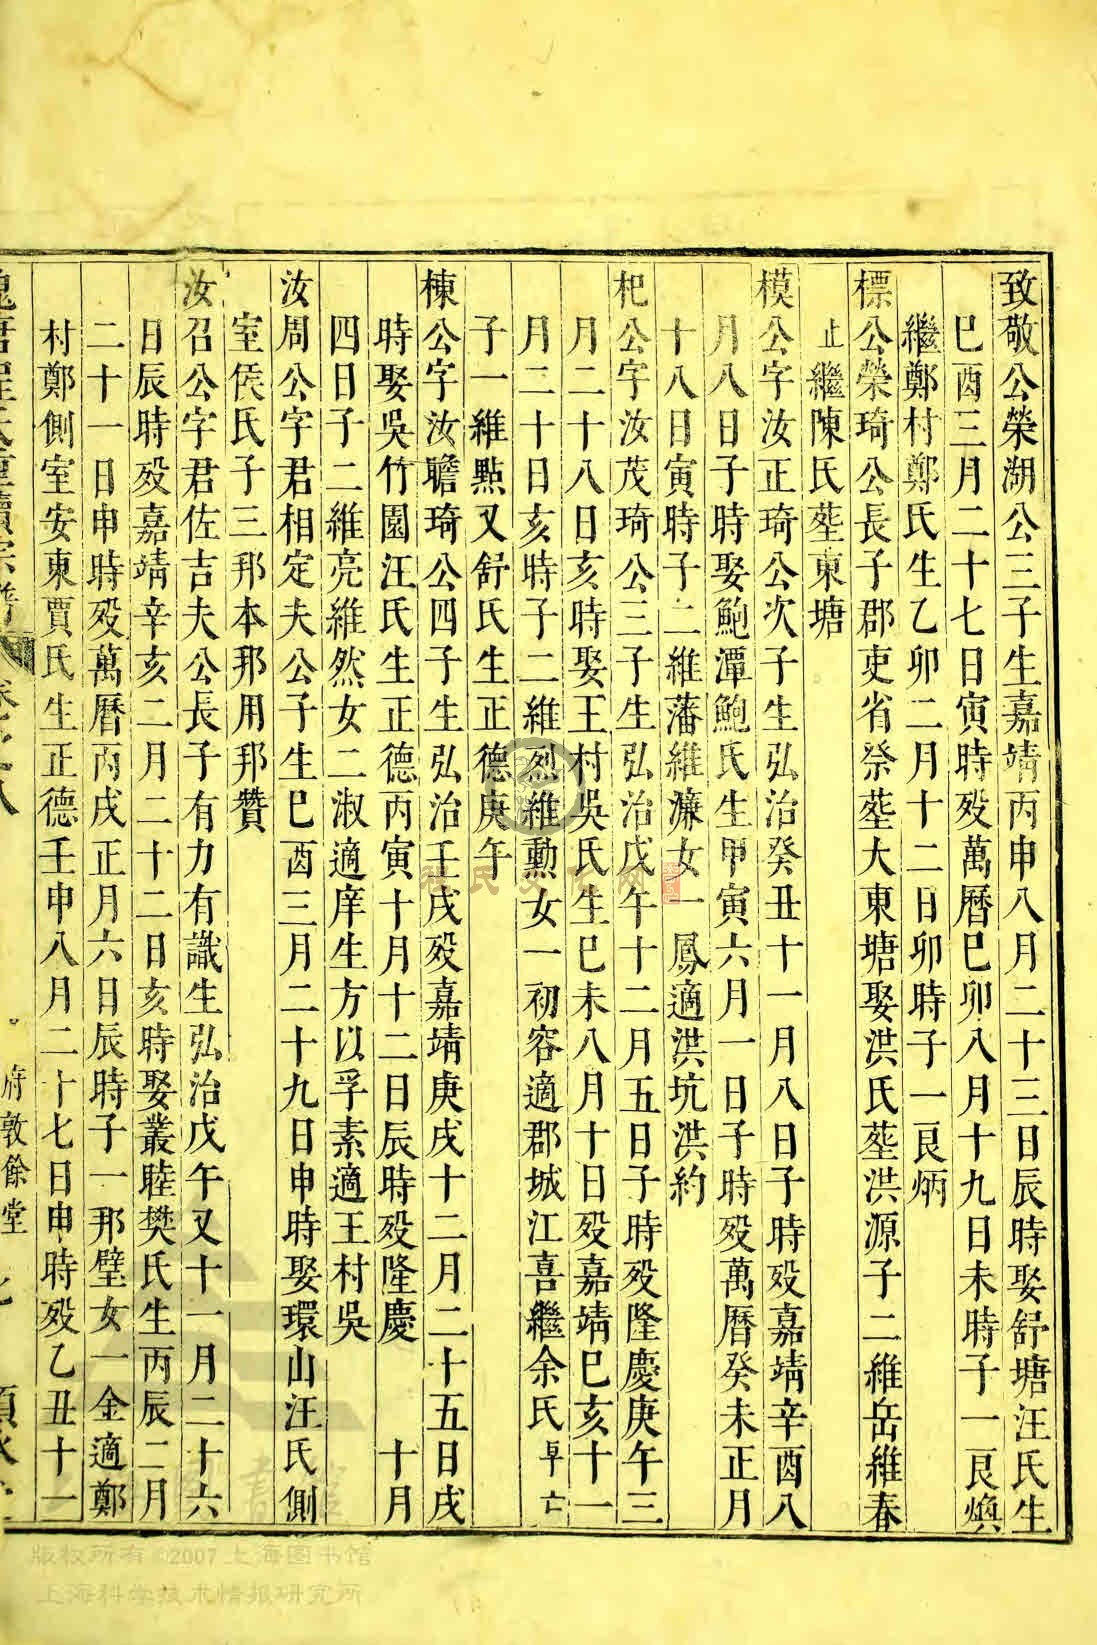 致敬公榮湖公三子生嘉靖丙申八月二十三日辰時娶舒塘汪氏生
巳酉三月二十七日寅時歿萬曆巳卯八月十九日未時子一良煥
繼鄭村鄭氏生乙卯二月十二日卯時子一良炳
標公榮琦公長子郡吏省祭塟大東塘娶洪氏塟洪源子二維岳維春
止繼陳氏塟東塘
模公字汝正琦公次子生弘治癸丑十一月八日子時歿嘉靖辛酉八
月八日子時娶鮑潭鮑氏生甲寅六月一日子時歿萬曆癸未正月
十八日寅時子二維藩維濂女一鳳適洪坑洪約
杞公字汝茂琦公三子生弘治戊午十二月五日子時歿隆慶庚午三
月二十八日亥時娶王村吳氏生巳未八月十日歿嘉靖巳亥十一
月二十日亥時子二維烈維勳女一初容適郡城江喜繼余氏卓亡
子一維點又舒氏生正德庚午
棟公字汝瞻琦公四子生弘治壬戌歿嘉靖庚戌十二月二十五日戌
時娶吳竹園汪氏生正德丙寅十月十二日辰時歿隆慶 十月
四日子二維亮維然女二淑適庠生方以孚素適王村吳
汝周公字君相定夫公子生巳酉三月二十九日申時娶環山汪氏側
室侯氏子三邦本邦用邦贊
汝召公字君佐吉夫公長子有力有識生弘治戊午又十一月二十六
日辰時歿嘉靖辛亥二月二十二日亥時娶叢睦樊氏生丙辰二月
二十一日申時歿萬曆丙戌正月六日辰時子一邦璧女一金適鄭
村鄭側室安東賈氏生正德壬申八月二十七日申時歿乙丑十一
府敦餘堂
程氏文化网
版权所有 ©2007 上海图书馆
上海科学技术情报研究所